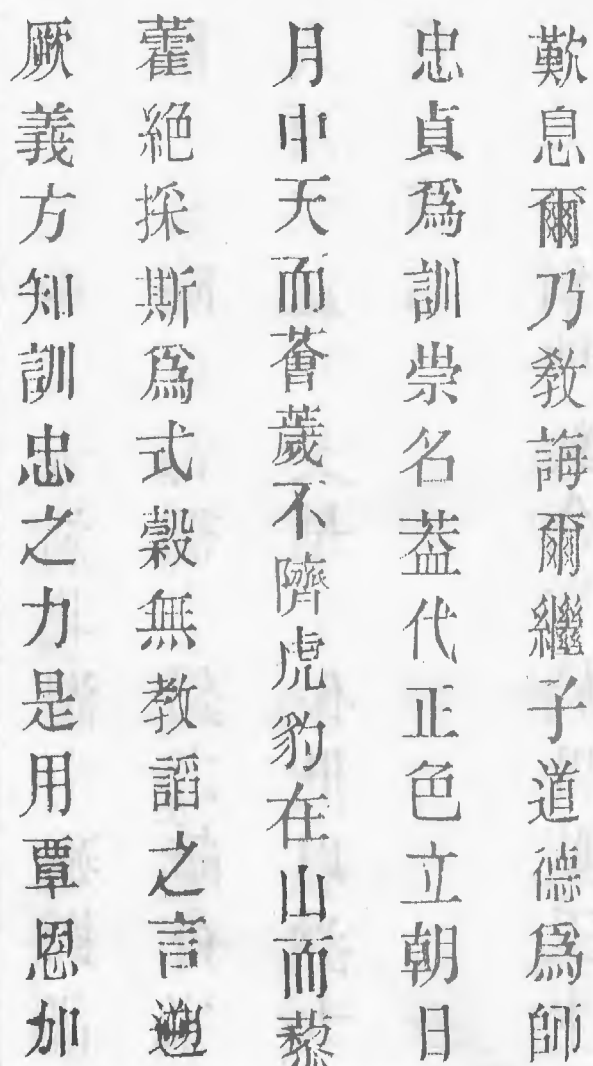 歎息爾乃教誨爾繼子道德爲師
忠貞爲訓崇名葢代正色立朝日
月中天而薈薉不隮虎豹在山而藜
藿絕採斯爲式穀無教謟之言遡
厥義方知訓忠之力是用覃恩加